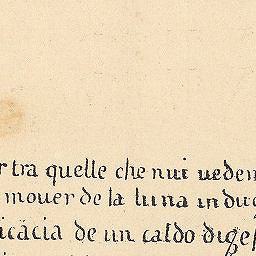 rtra quelle che nui ueden
mouer de la luna induc
icàcia de un caldo diges